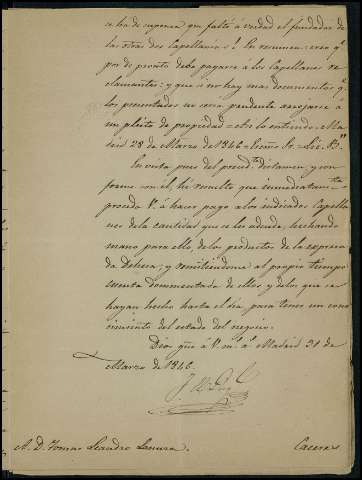 se ha de suponer que faltó á verdad el fundador de
las otras dos Capellanias. En resumen: creo q.e
por de pronto debe pagarse á los Capellanes re
clamantes; y que si no hay mas documentos q.e
los presentados no seria prudente arrojarse á
un pleito de propiedad = asi lo entiendo. Ma
drid 28 de Marzo de 1846 =
En vista pues del preced.te dictamen, y con
forme con él, he resuelto que inmediatam.te
proceda V. á hacer pago á los indicados Capella
nes de la cantidad que se les adeuda, hechando
mano para ello, de los productos de la expresa
da dehesa; y remitiendome al propio tiempo
cuenta documentada de ellos y de los que se
hayan hecho hasta el dia para tener un cono
cimiento del estado del negocio.
Dios gue á V. m.s a.s Madrid 31 de
Marzo de 1846.
A D. Tomas Leandro
Caceres